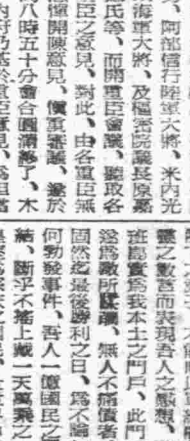 、阿部信行陸軍大將、米內光
海軍大將、及樞密院議長原嘉
氏等、而開重臣會議、聽取各
臣之意見、對此、由各重臣無
憚開陳意見、慎重審議、遂於
八時五十分會合圓滿終了、木
內府乃基於重臣意見、
靈之數言而表現吾人之感想、
班島實為我本土之門戶、此門
遂為敵所蹂躪、無人不痛憤者
固然迄最後勝利之日、為不論
何勃發事件、吾人一億國民之
結、斷乎不搖上戴一天萬乘之